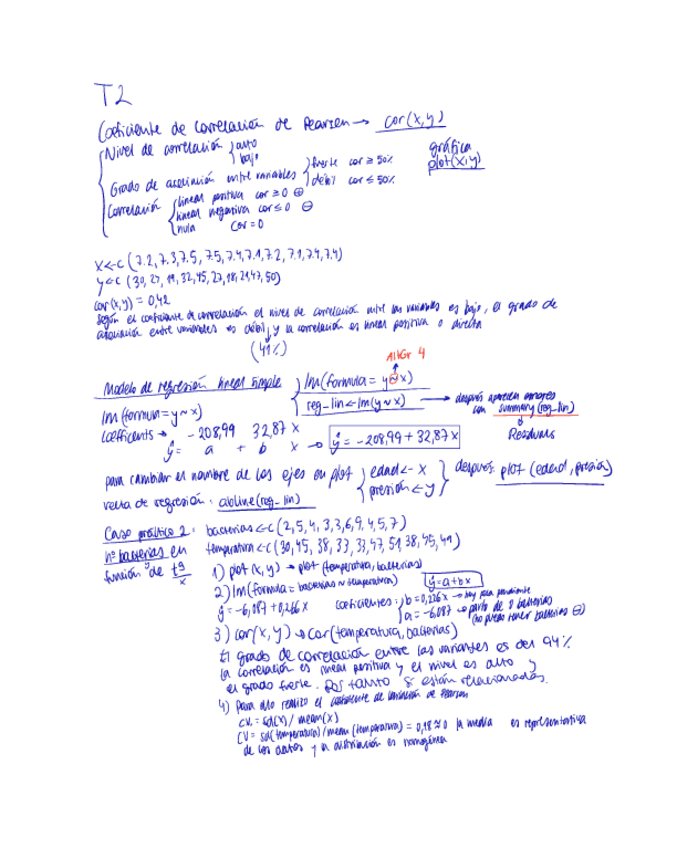 T2
Coeficiente de correlación de Pearson → cor(x,y)
Nivel de correlación { alto
bajo
gráfica
plot(x,y)
Grado de asociación entre variables { fuerte cor ≥ 50%
débil cor ≤ 50%
Correlación { lineal positiva cor ≥ 0 ⊕
lineal negativa cor ≤ 0 ⊖
nula cor = 0
x<-c (7.2, 7.3, 7.5, 7.5, 7.4, 7.1, 7.2, 7.1, 7.4, 7.4)
y<-c (30, 27, 19, 32, 45, 27, 18, 21, 47, 50)
cor(x,y) = 0,42
Según el coeficiente de correlación el nivel de correlación entre las variables es bajo, el grado de
asociación entre variables es débil, y la correlación es lineal positiva o directa
(41%)
AltGr 4
Modelo de regresión lineal simple { lm(formula = y ~ x)
reg_lin <- lm(y ~ x) → después aparecen errores
con summary(reg_lin)
Residuals
lm(formula = y ~ x)
Coefficients → -208,99 32,87 x
ŷ = a + b x → ŷ = -208,99 + 32,87 x
para cambiar el nombre de los ejes en plot { edad <- x
presión <- y } después: plot (edad, presión)
recta de regresión: abline(reg_lin)
Caso práctico 2: bacterias <- c (2, 5, 4, 3, 3, 6, 9, 4, 5, 7)
nº bacterias en temperatura <- c (30, 45, 38, 33, 33, 47, 51, 38, 45, 49)
función de tª
y x
1) plot (x, y) → plot (temperatura, bacterias)
2) lm(formula = bacterias ~ temperatura) ŷ = a + bx
ŷ = -6,087 + 0,266 x coeficientes: { b = 0,226 x → hay poca pendiente
a = -6,087 → parto de 0 bacterias
(no puedo tener bacterias ⊖)
3) cor(x, y) → cor(temperatura, bacterias)
El grado de correlación entre las variantes es del 94%
la correlación es lineal positiva y el nivel es alto y
el grado fuerte. Por tanto sí están relacionadas.
4) para ello realizo el coeficiente de variación de Pearson
CV = sd(x) / mean(x)
CV = sd(temperatura) / mean (temperatura) = 0,18 ≈ 0 la media es representativa
de los datos y la distribución es homogénea